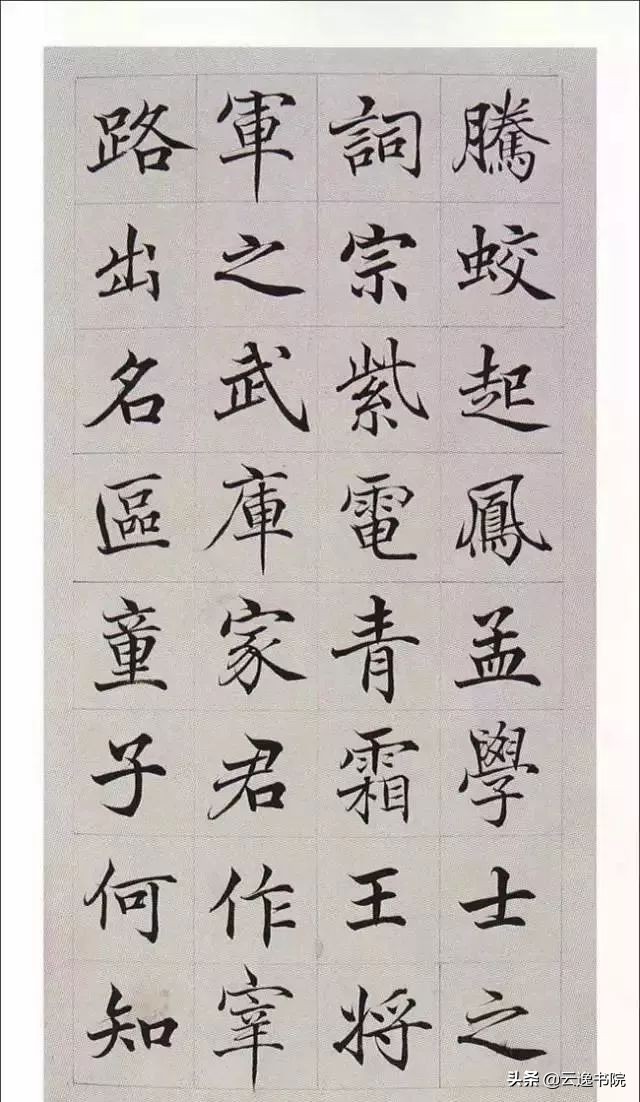 騰蛟起鳳孟學士之
詞宗紫電青霜王將
軍之武庫家君作宰
路出名區童子何知
头条 @云逸书院